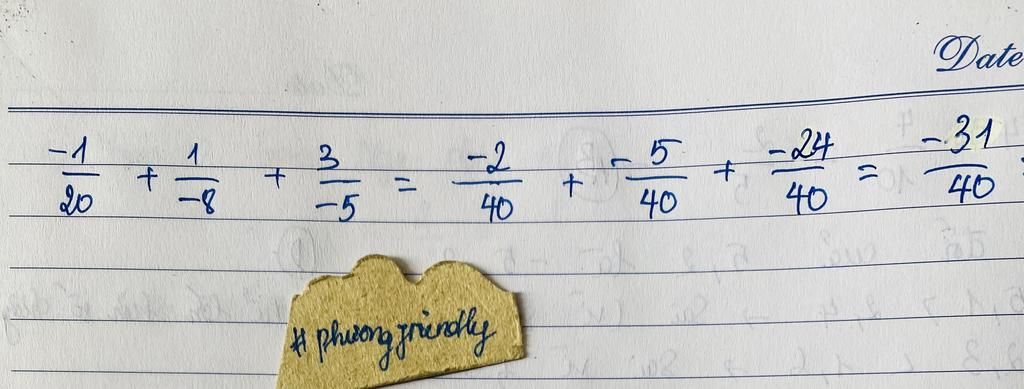 Date
-1/20 + 1/-8 + 3/-5 = -2/40 + -5/40 + -24/40 = -31/40
# phuongfriendly